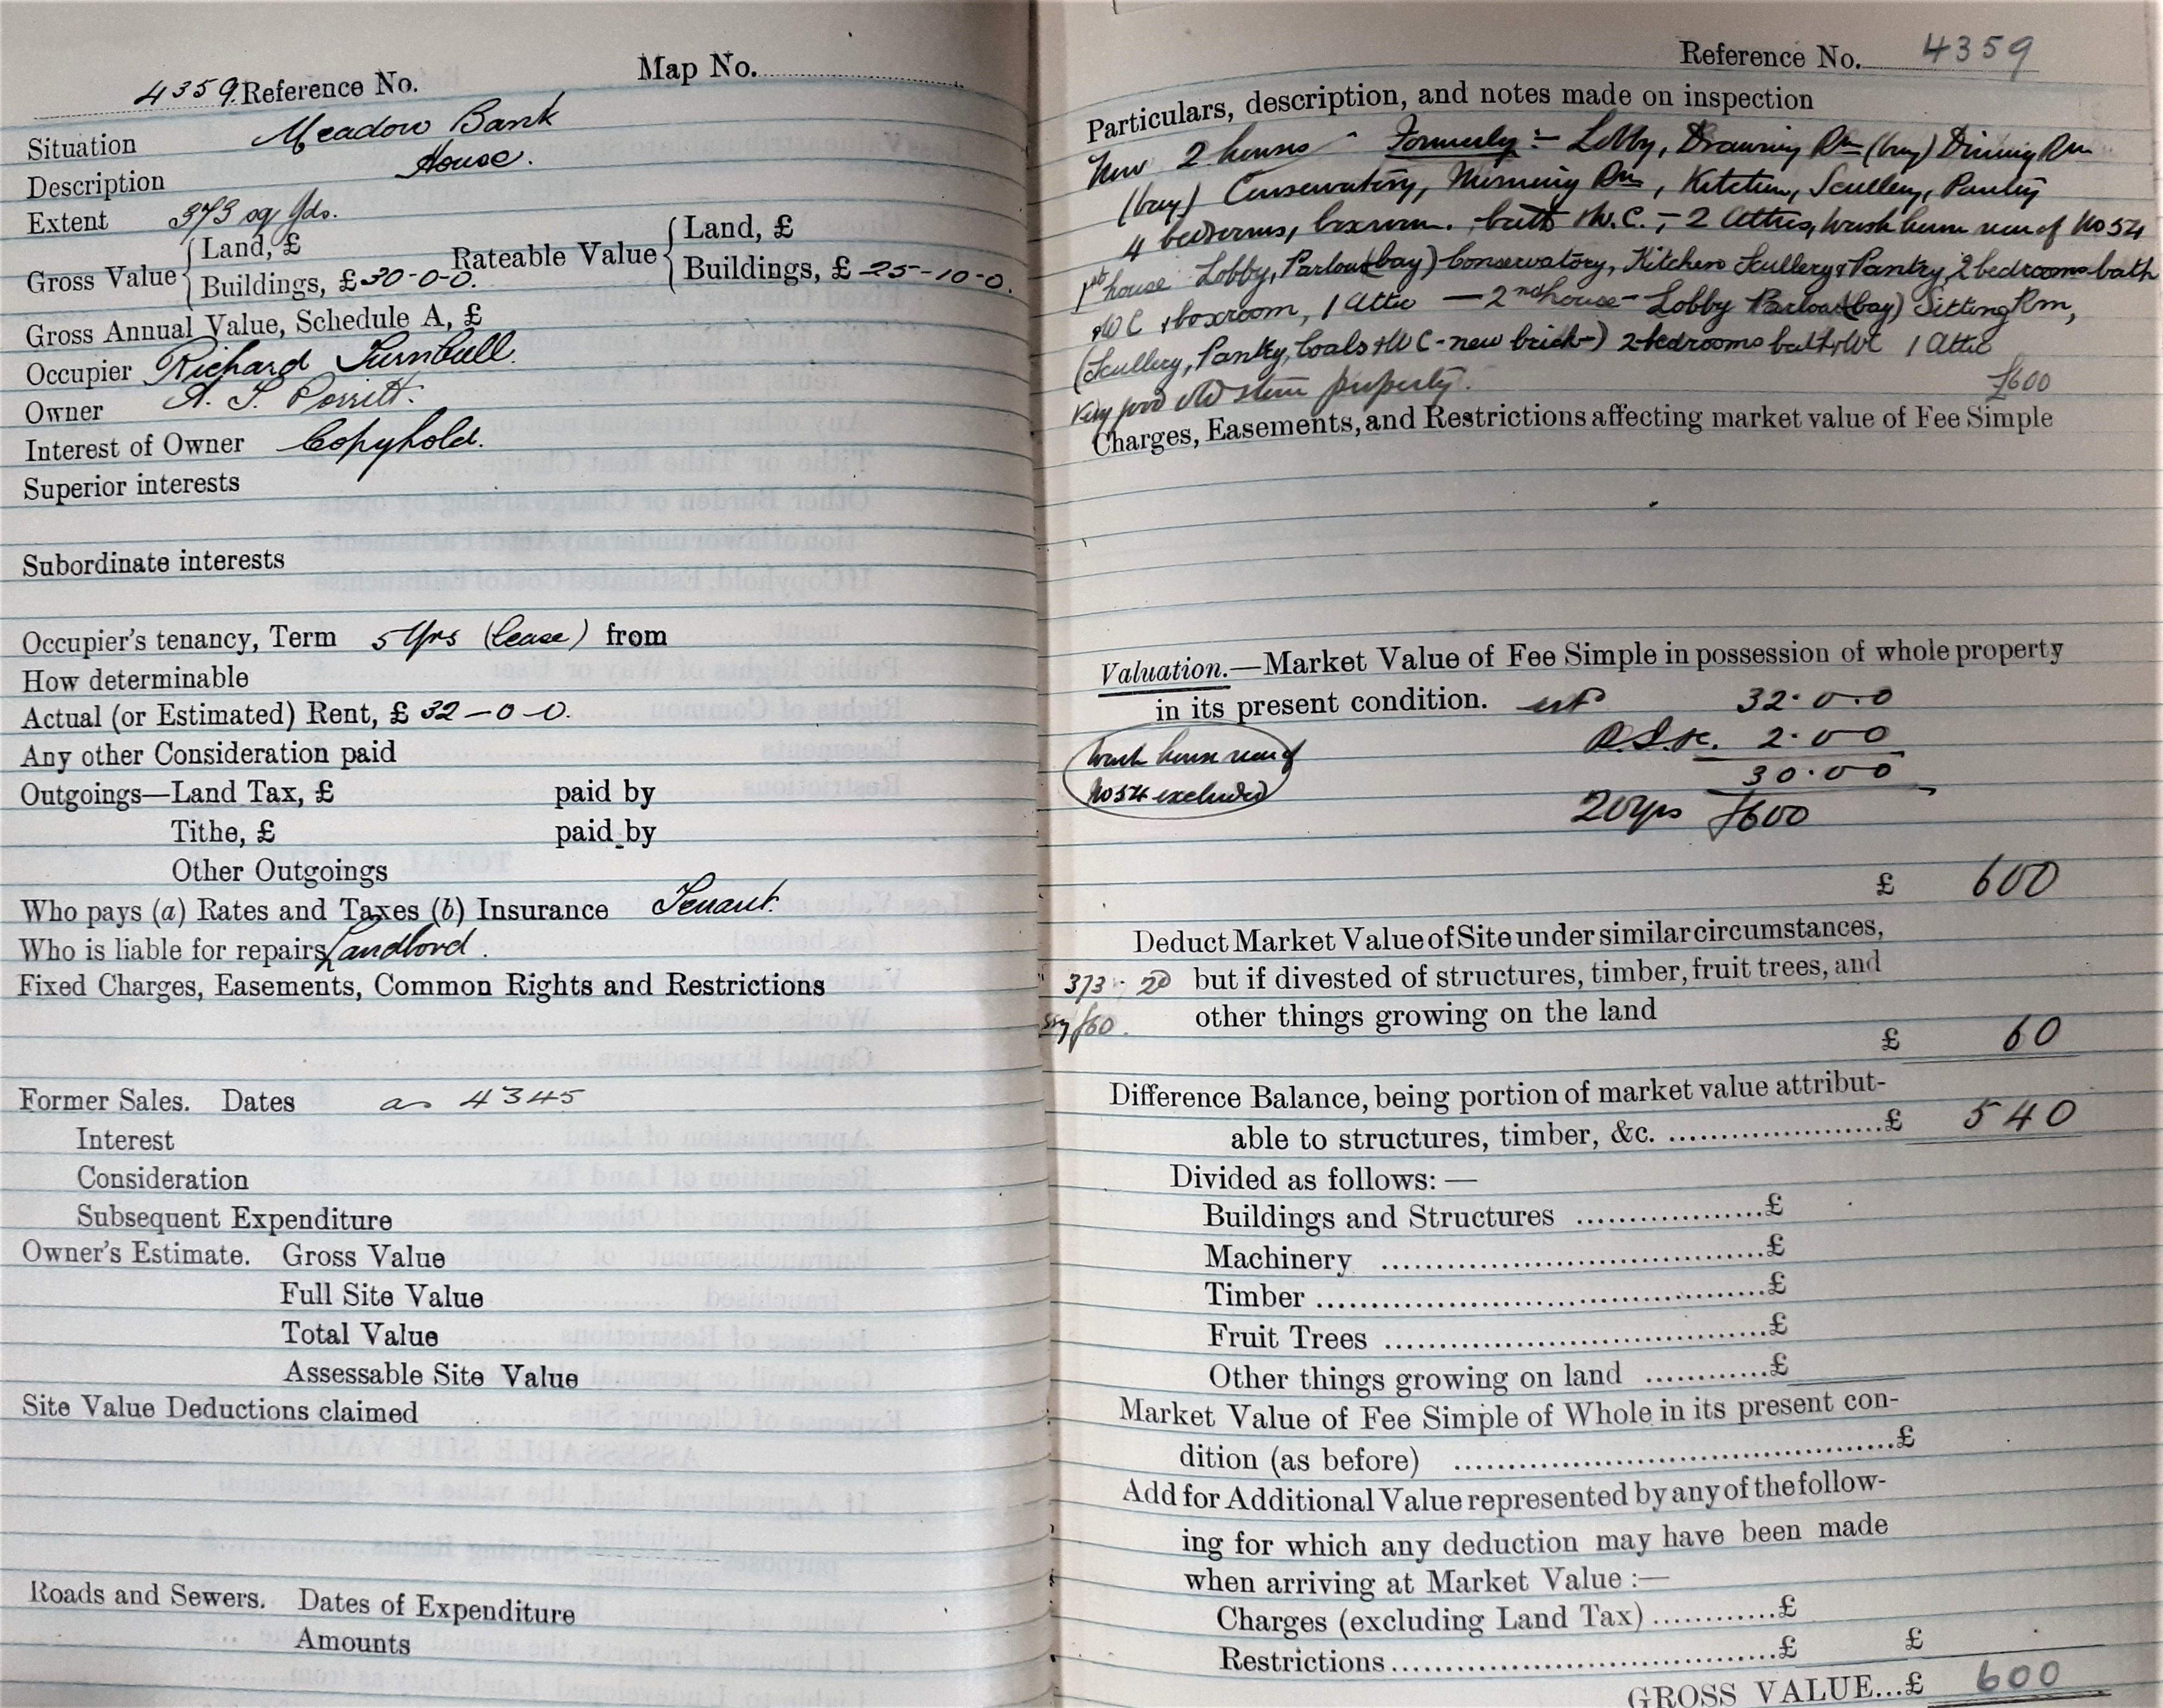 4359. Reference No. Map No.
Situation Meadow Bank
House.
Description
Extent 373 sq Yds.
Gross Value { Land, £ Rateable Value { Land, £
Buildings, £ 30-0-0. Buildings, £ 25-10-0.
Gross Annual Value, Schedule A, £
Occupier Richard Turnbull.
Owner A. T. Porritt.
Interest of Owner Copyhold.
Superior interests
Subordinate interests
Occupier's tenancy, Term 5 Yrs (Lease) from
How determinable
Actual (or Estimated) Rent, £ 32-0-0.
Any other Consideration paid
Outgoings—Land Tax, £ paid by
Tithe, £ paid by
Other Outgoings
Who pays (a) Rates and Taxes (b) Insurance Tenant.
Who is liable for repairs Landlord.
Fixed Charges, Easements, Common Rights and Restrictions
Former Sales. Dates as 4345
Interest
Consideration
Subsequent Expenditure
Owner's Estimate. Gross Value
Full Site Value
Total Value
Assessable Site Value
Site Value Deductions claimed
Roads and Sewers. Dates of Expenditure
Amounts
Reference No. 4359
Particulars, description, and notes made on inspection
Now 2 houses - Formerly :- Lobby, Drawing Rm (bay) Dining Rm
(bay) Conservatory, Morning Rm, Kitchen, Scullery, Pantry
4 bedrooms, boxroom. bath & W.C. ; - 2 Attics, wash house rear of No 54
1st house Lobby, Parlour (bay) Conservatory, Kitchen Scullery & Pantry, 2 bedrooms bath
& WC & boxroom, 1 Attic — 2nd house - Lobby Parlour (bay) Sitting Rm,
(Scullery, Pantry, Coals & WC - new brick -) 2 bedrooms bath & WC 1 Attic
Very good old stone property. £600
Charges, Easements, and Restrictions affecting market value of Fee Simple
Valuation.—Market Value of Fee Simple in possession of whole property
in its present condition. est 32.0.0
2.0 0
30.0 0
Wash house rear of
No 54 excluded
20 yrs £600
£ 600
Deduct Market Value of Site under similar circumstances,
373 - but if divested of structures, timber, fruit trees, and
say £60. other things growing on the land
£ 60
Difference Balance, being portion of market value attribut-
able to structures, timber, &c. ......................£ 540
Divided as follows: —
Buildings and Structures ...................£
Machinery ...................................£
Timber .........................................£
Fruit Trees ..................................£
Other things growing on land ............£
Market Value of Fee Simple of Whole in its present con-
dition (as before) ........................................£
Add for Additional Value represented by any of the follow-
ing for which any deduction may have been made
when arriving at Market Value :—
Charges (excluding Land Tax) ............£
Restrictions ...................................£ £
GROSS VALUE...£ 600